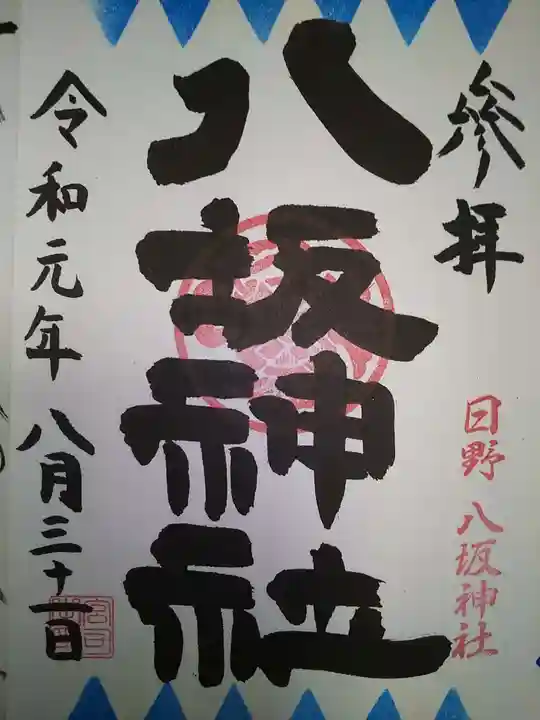 参拝
日野八坂神社
八坂神社
令和元年八月三十一日
宮司